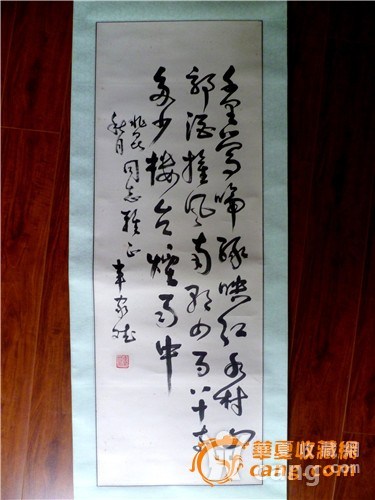 千里莺啼绿映红水村山
郭酒旗风南朝四百八十寺
多少楼台煙雨中
秋月同志雅正
華夏收藏網
cang.com